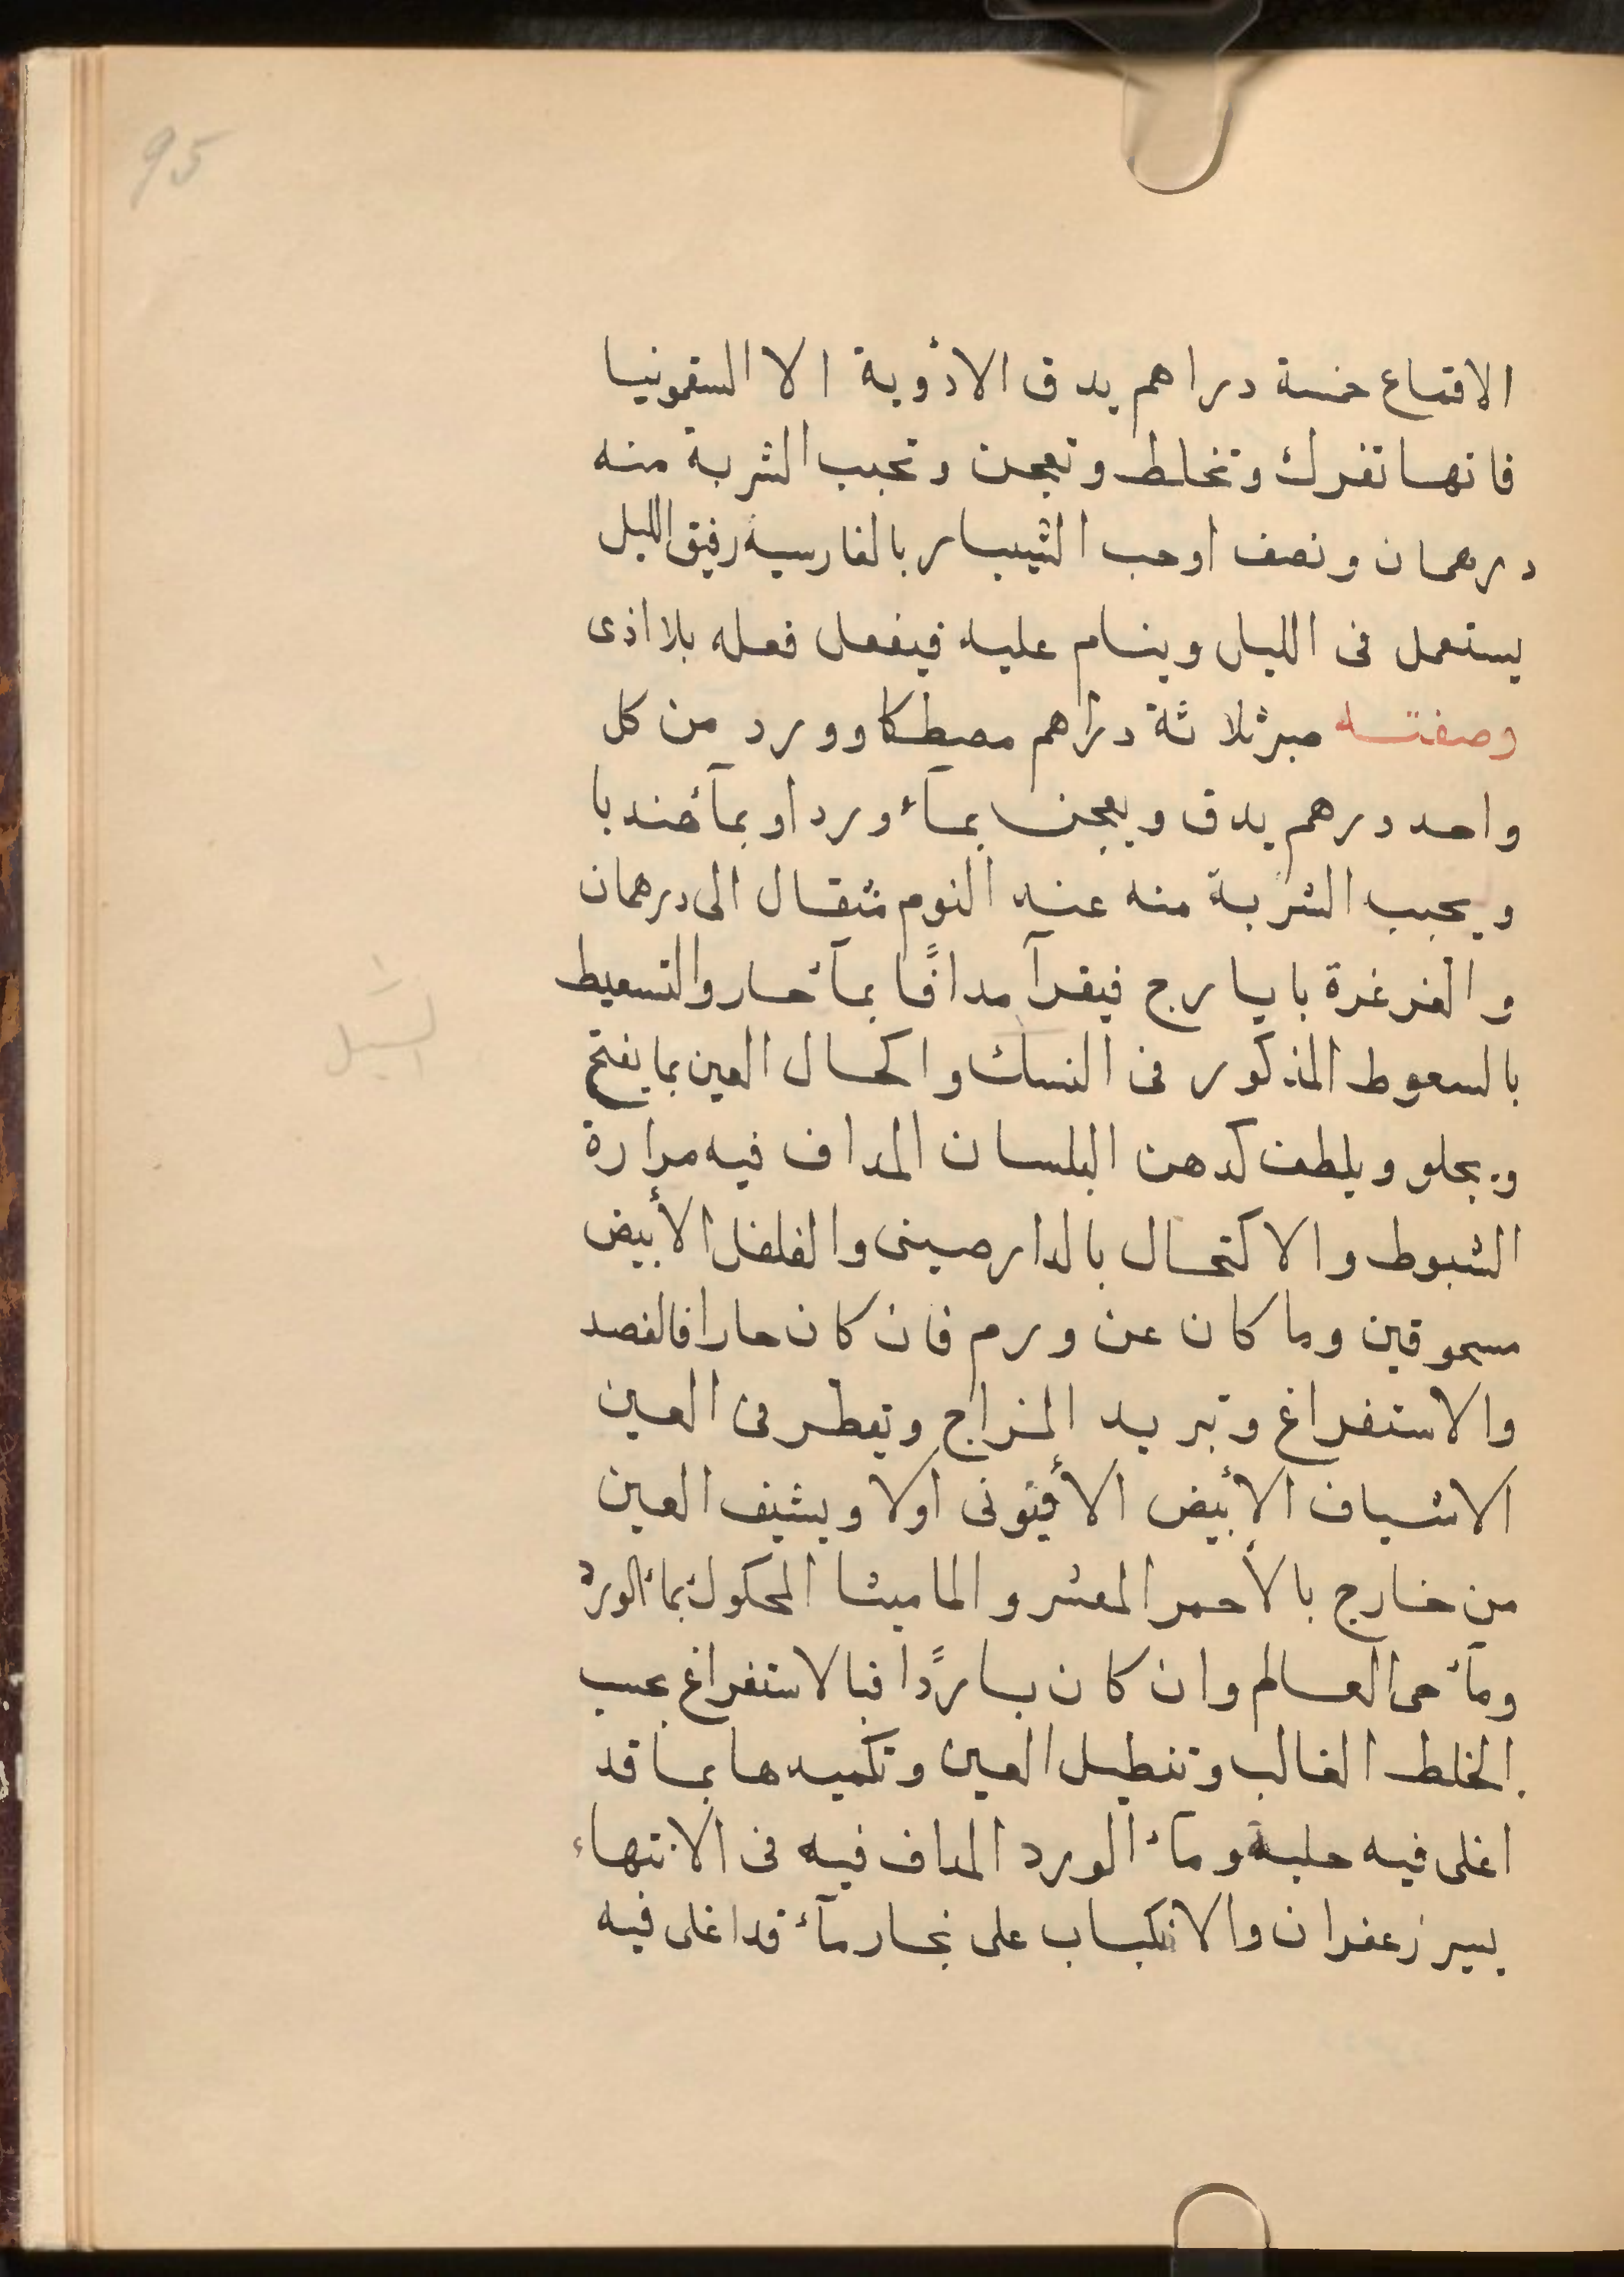 95
الاقماع خمسة دراهم يدق الادوية الا السقمونيا
فانها تفرك وتخلط وتعجن وتحبب الشربة منه
درهمان ونصف اوحب الشيبار بالفارسية رفيق الليل
يستعمل فى الليل وينام عليه فيفعل فعله بلا اذى
وصفتـــه صبر ثلاثة دراهم مصطكا وورد من كل
واحد درهم يدق ويعجن بمآء ورد او بمآء هندبا
ويحبب الشربة منه عند النوم مثقال الى درهمان
والغرغرة بايارج فيقرآ مدافًا بمآء حار والتسعيط
بالسعوط المذكور فى النسك واكحال العين بما يفتح
ويجلو ويلطف كدهن البلسان المداف فيه مرارة
الشبوط والاكتحال بالدارصينى والفلفل الأبيض
مسحوقين وما كان عن ورم فان كان حارا فالفصد
والاستفراغ وتبريد المزاج وتقطر فى العين
الاشياف الأبيض الأفيونى اولا ويشيف العين
من خارج بالأحمر المعشر والماميثا المحكوك بمآء الورد
ومآء حى العالم وان كان باردًا فبالاستفراغ بحسب
الخلط الغالب وتنطيل العين وتكميدها بما قد
اغلى فيه حلبة ومآء الورد المداف فيه فى الانتهاء
يسير زعفران والانكباب على بخار مآء قد اغلى فيه